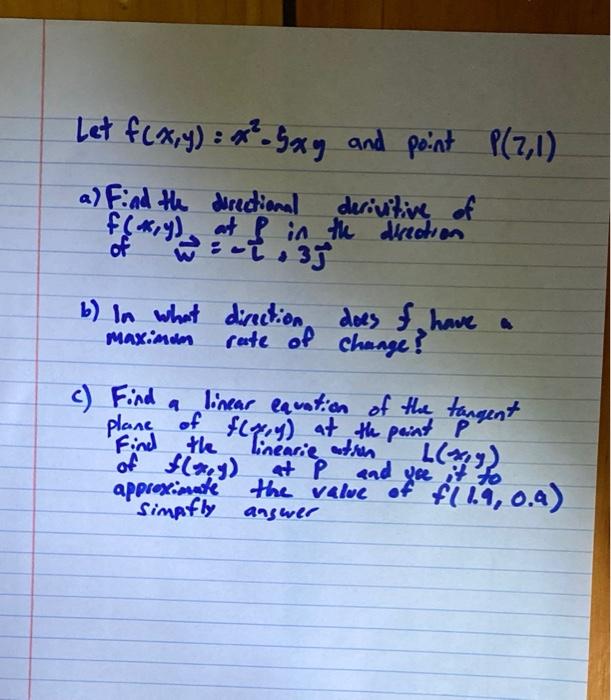 Let f(x,y) = x² - 5xy and point P(7,1)
a) Find the directional derivitive of
f(x,y) at P in the direction
of w⃗ = -i⃗ + 3j⃗
b) In what direction does f have a
maximum rate of change?
c) Find a linear equation of the tangent
plane of f(x,y) at the point P
Find the L(x,y)
of f(x,y) at P and use it to
approximate the value of f(1.9, 0.9)
simpfly answer